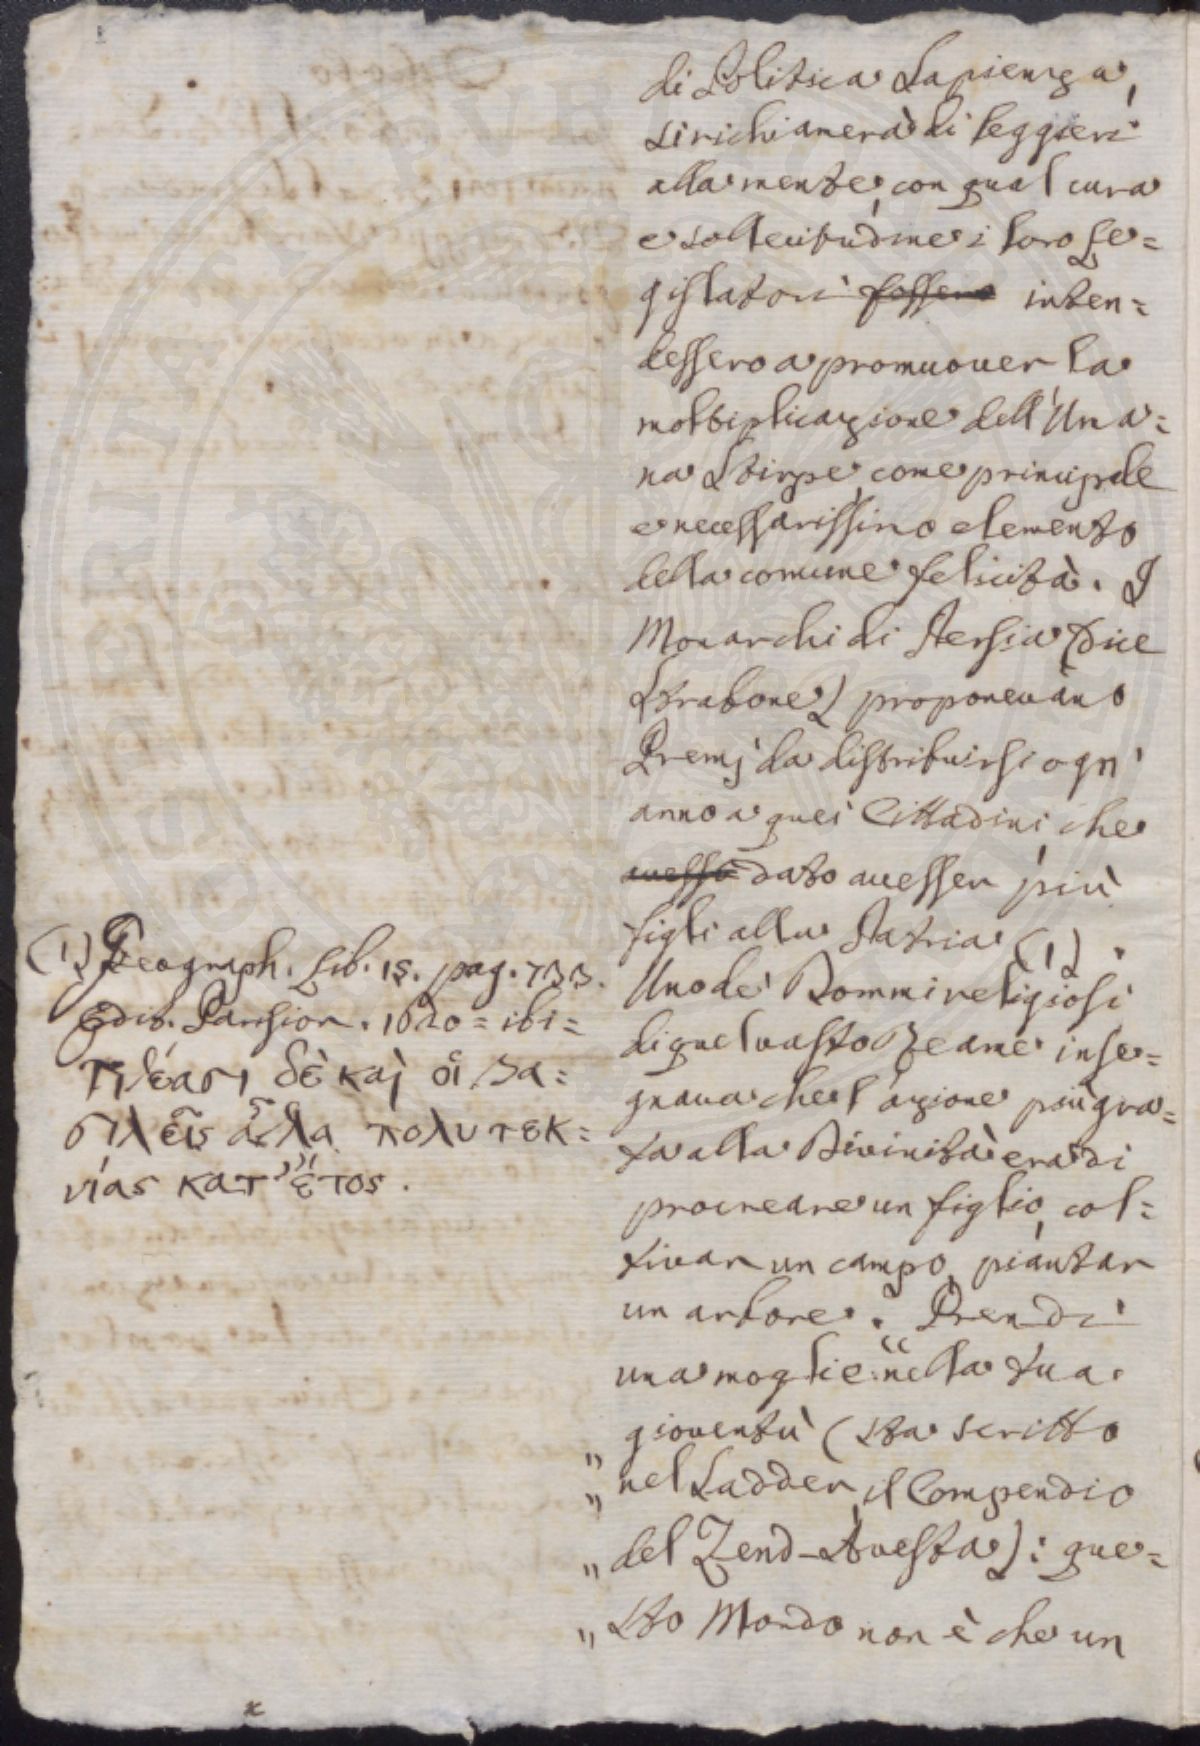 di Politica Sapienza,
si richiamerà di leggieri
alla mente, con qual cura
e sollecitudine i loro Le=
gislatori fossero inten=
dessero a promuover la
moltiplicazione dell'Uma=
na Stirpe, come principale
e necessarissimo elemento
della comune felicità. I
Monarchi di Persia (dice
Strabone) proponevano
Premj da distribuirsi ogn'
anno a quei Cittadini, che
avesse dato avesser più
figli alla Patria (1).
Uno de' Dommi religiosi
di quel vasto Reame inse=
gnava che l'azione più gra=
ta alla Divinità era di
procreare un figlio, col=
tivar un campo, piantar
un arbore. Prendi
una moglie nella tua
gioventù (sta scritto
„ nel Sadder, il Compendio
„ del Zend-Avesta): que=
„ sto Mondo non è che un
(1) Geograph. Lib. 15. pag. 733.
Edit. Parision. 1620 = ibi =
τιθέασι δὲ καὶ οἱ βα=
σιλεῖς ἆθλα πολυτεκ=
νίας κατ' ἔτος.